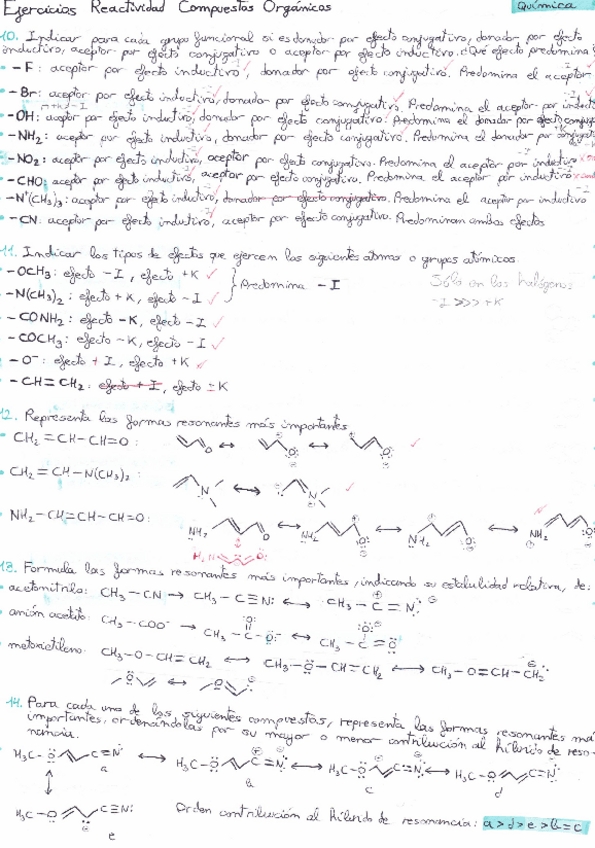 Ejercicios Reactividad Compuestos Orgánicos
Química
10. Indicar para cada grupo funcional si es donador por efecto conjugativo, donador por efecto
inductivo, aceptor por efecto conjugativo o aceptor por efecto inductivo. ¿Qué efecto predomina?
-F: aceptor por efecto inductivo, donador por efecto conjugativo. Predomina el aceptor
-Br: aceptor por efecto inductivo, donador por efecto conjugativo. Predomina el aceptor por induct
-OH: aceptor por efecto inductivo, donador por efecto conjugativo. Predomina el donador por efecto conjug
-NH2: aceptor por efecto inductivo, donador por efecto conjugativo. Predomina el donador por conjugativo
-NO2: aceptor por efecto inductivo, aceptor por efecto conjugativo. Predomina el aceptor por inductivo
-CHO: aceptor por efecto inductivo, aceptor por efecto conjugativo. Predomina el aceptor por inductivo
-N+(CH3)3: aceptor por efecto inductivo, donador por efecto conjugativo. Predomina el aceptor por inductivo
-CN: aceptor por efecto inductivo, aceptor por efecto conjugativo. Predominan ambos efectos
11. Indicar los tipos de efectos que ejercen los siguientes átomos o grupos atómicos:
-OCH3: efecto -I, efecto +K
-N(CH3)2: efecto +K, efecto -I
Predomina -I
Sólo en los halógenos
-I >>> +K
-CONH2: efecto -K, efecto -I
-COCH3: efecto -K, efecto -I
-O-: efecto +I, efecto +K
-CH=CH2: efecto +I, efecto ±K
12. Representa las formas resonantes más importantes
CH2=CH-CH=O:
CH2=CH-N(CH3)2:
NH2-CH=CH-CH=O:
13. Formula las formas resonantes más importantes, indicando su estabilidad relativa, de:
acetonitrilo: CH3-CN → CH3-C≡N: ↔ CH3-C=N:
anión acetato: CH3-COO- → CH3-C-O: ↔ CH3-C=O
metoxietileno: CH3-O-CH=CH2 ↔ CH3-O-CH=CH2 ↔ CH3-O=CH-CH2
14. Para cada uno de los siguientes compuestos, representa las formas resonantes más
importantes, ordenándolas por su mayor o menor contribución al híbrido de reso-
nancia.
H3C-O C≡N: ↔ H3C-O C=N: ↔ H3C-O C=N: ↔ H3C-O C≡N:
a b c d
H3C-O C≡N:
e
Orden contribución al híbrido de resonancia: a>d>e>b=c